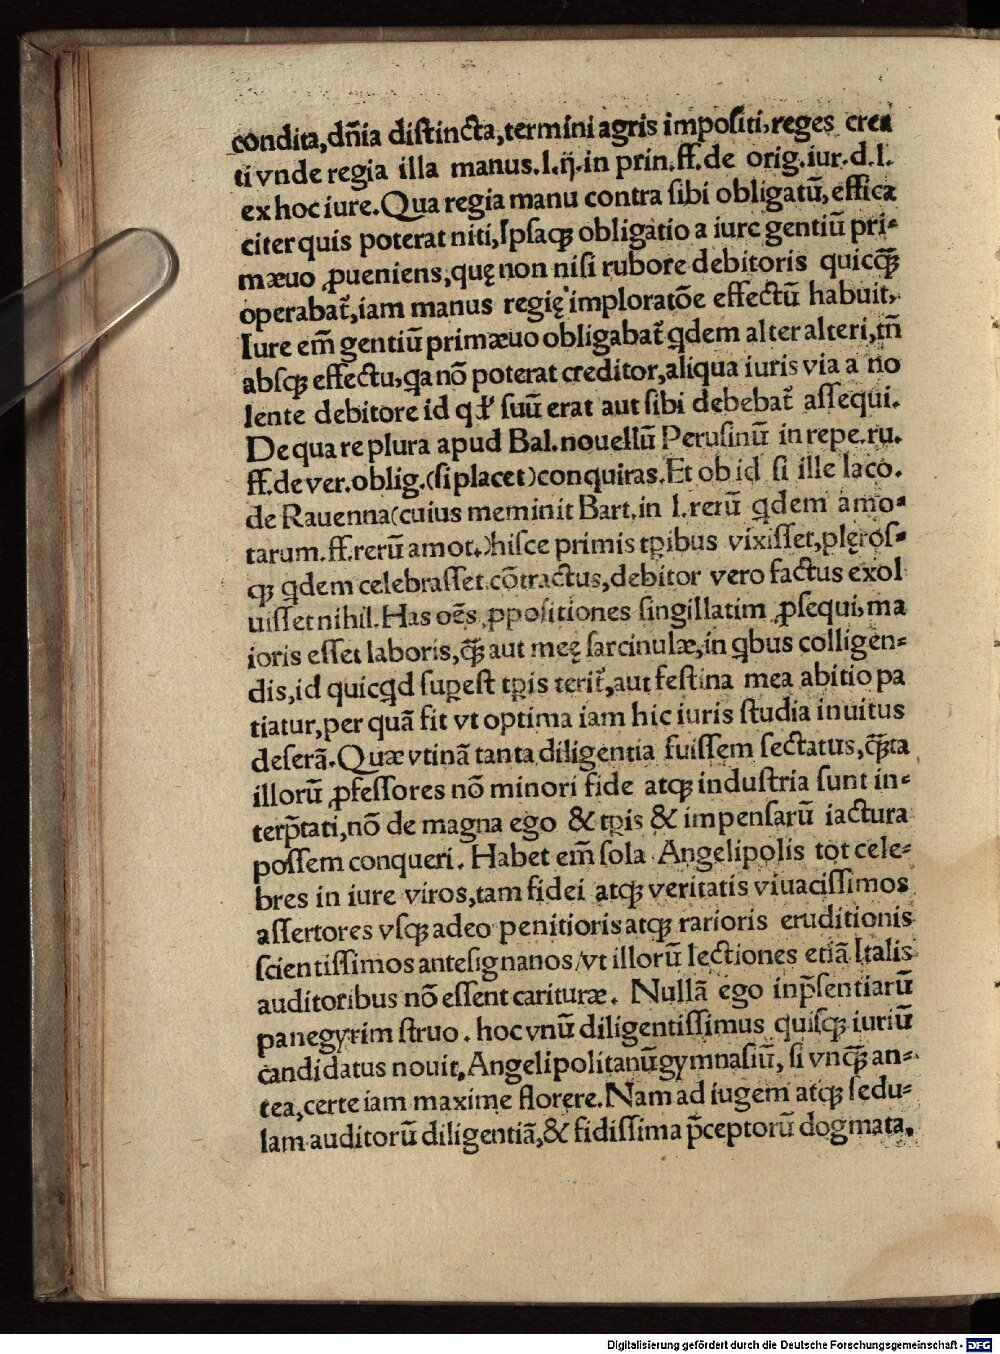 condita,dn̄ia distincta,termini agris impositi,reges crea
ti vnde regia illa manus.l.ij.in prin.ff.de orig.iur.d.l.
ex hoc iure.Qua regia manu contra sibi obligatū,effica
citer quis poterat niti,Ipsaqꝫ obligatio a iure gentiū pri-
mæuo ꝓueniens,quę non nisi rubore debitoris quicq̄ꝫ
operabat̃,iam manus regię imploratōe effectū habuit,
Iure em̄ gentiū primæuo obligabat̃ qdem alter alteri,tn̄
absqꝫ effectu,qa nō poterat creditor,aliqua iuris via a no
lente debitore id qď suū erat aut sibi debebat̃ assequi.
De qua re plura apud Bal.nouellū Perusinū in repe.ru.
ff.de ver.oblig.(si placet)conquiras.Et ob id si ille Iaco.
de Rauenna(cuius meminit Bart.in l.rerū qdem amo-
tarum.ff.rerū amot.)hisce primis tꝑibus vixisset,plęros-
qꝫ qdem celebrasset cōtractus,debitor vero factus exol
uisset nihil.Has oēs ꝓpositiones singillatim ꝓsequi,ma
ioris esset laboris,q̄ꝫ aut meę sarcinulæ,in qbus colligen-
dis,id quicqd suꝑest tꝑis terit̃,aut festina mea abitio pa
tiatur,per quā fit vt optima iam hic iuris studia inuitus
deserā.Quæ vtinā tanta diligentia fuissem sectatus,q̄ꝫta
illorū ꝓfessores nō minori fide atqꝫ industria sunt in-
terp̄tati,nō de magna ego & tꝑis & impensarū iactura
possem conqueri. Habet em̄ sola Angelipolis tot cele-
bres in iure viros,tam fidei atqꝫ veritatis viuacissimos
assertores vsqꝫ adeo penitioris atqꝫ rarioris eruditionis
scientissimos antesignanos/vt illorū lectiones etiā Italis
auditoribus nō essent carituræ. Nullā ego inp̄sentiarū
panegyrim struo. hoc vnū diligentissimus quisqꝫ iuriū
candidatus nouit,Angelipolitanū gymnasiū, si vnq̄ꝫ an-
tea,certe iam maxime florere.Nam ad iugem atqꝫ sedu-
lam auditorū diligentiā,& fidissima p̄ceptorū dogmata,
Digitalisierung gefördert durch die Deutsche Forschungsgemeinschaft - DFG